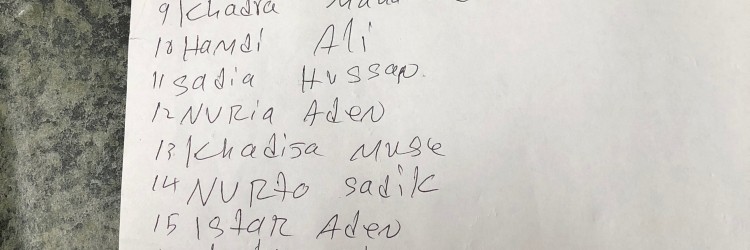 9 Khadra
10 Hamdi Ali
11 Sadia Hussan.
12 NURia Aden
13 Khadisa Muse
14 NURto Sadik
15 IStaR Aden